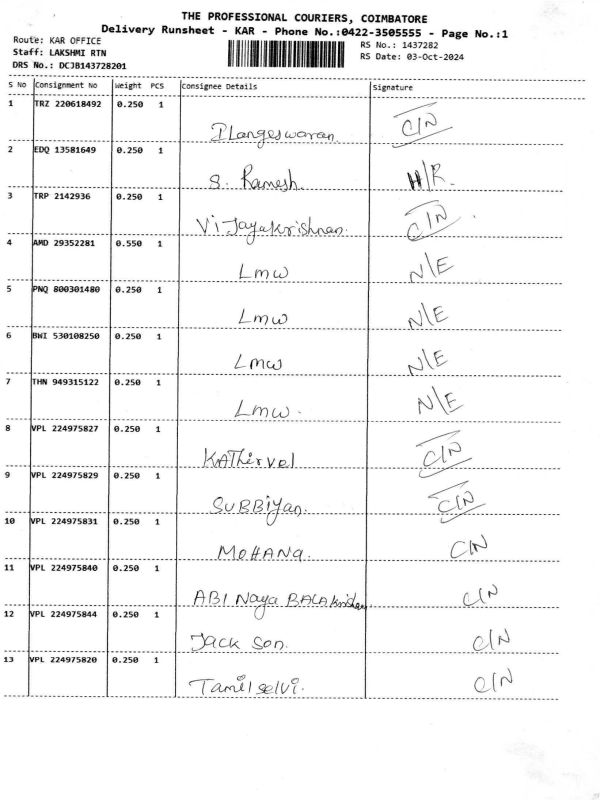 THE PROFESSIONAL COURIERS, COIMBATORE
Delivery Runsheet - KAR - Phone No.:0422-3505555 - Page No.:1
Route: KAR OFFICE RS No.: 1437282
Staff: LAKSHMI RTN RS Date: 03-Oct-2024
DRS No.: DCJB143728201
S No Consignment No Weight PCS Consignee Details Signature
1 TRZ 220618492 0.250 1
Ilangeswaran C/N
2 EDQ 13581649 0.250 1
S. Ramesh. H/R.
3 TRP 2142936 0.250 1
Vijayakrishnan. C/N
4 AMD 29352281 0.550 1
Lmw N/E
5 PNQ 800301480 0.250 1
Lmw N/E
6 BWI 530108250 0.250 1
Lmw N/E
7 THN 949315122 0.250 1
Lmw. N/E
8 VPL 224975827 0.250 1
KAThirvel C/N
9 VPL 224975829 0.250 1
SUBBiyan. C/N
10 VPL 224975831 0.250 1
MOHANa. C/N
11 VPL 224975840 0.250 1
ABI Naya BALAkrishnan C/N
12 VPL 224975844 0.250 1
Jack son. C/N
13 VPL 224975820 0.250 1
Tamilselvi. C/N